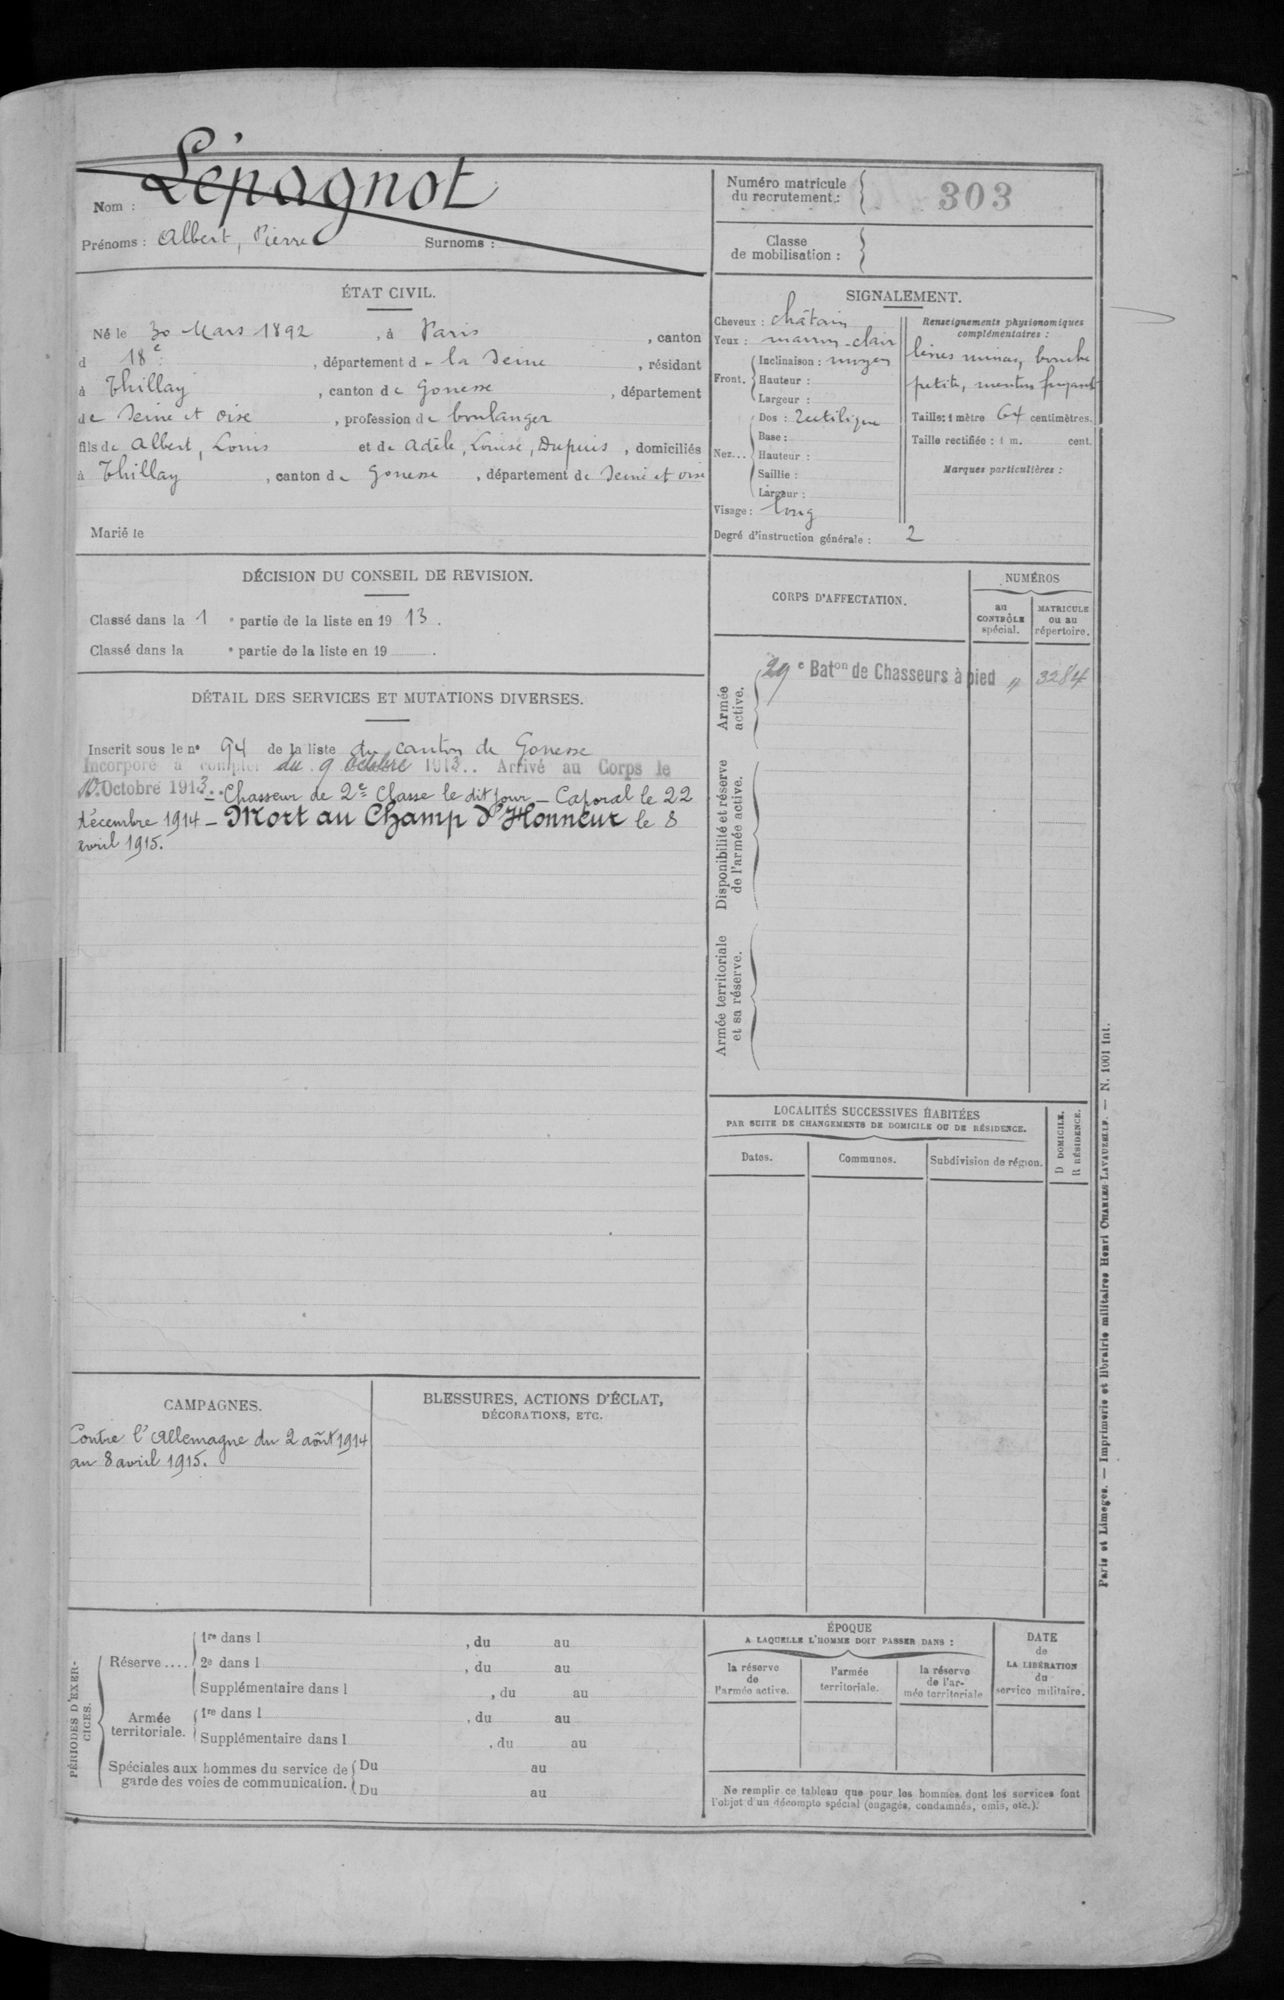 Nom : Lépagnot
Prénoms : Albert, Pierre Surnoms :
Numéro matricule
du recrutement : 303
Classe
de mobilisation :
ÉTAT CIVIL.
Né le 30 Mars 1892, à Paris, canton
d 18e, département de la Seine, résidant
à Thillay, canton de Gonesse, département
de Seine et oise, profession de boulanger
fils de Albert, Louis et de Adèle, Louise, Dupuis, domiciliés
à Thillay, canton de Gonesse, département de Seine et oise
Marié le
SIGNALEMENT.
Cheveux : châtain
Yeux : marron-clair
Front. Inclinaison : moyen
Hauteur :
Largeur :
Nez... Dos : rectilique
Base :
Hauteur :
Saillie :
Largeur :
Visage : long
Degré d'instruction générale : 2
Renseignements physionomiques
complémentaires :
lèvres minces, bouche
petite, menton fuyant
Taille: 1 mètre 64 centimètres.
Taille rectifiée : 1 m. cent.
Marques particulières :
DÉCISION DU CONSEIL DE REVISION.
Classé dans la 1 e partie de la liste en 1913.
Classé dans la e partie de la liste en 19 .
DÉTAIL DES SERVICES ET MUTATIONS DIVERSES.
Inscrit sous le no 94 de la liste du canton de Gonesse
Incorporé à compter du 9 octobre 1913.. Arrivé au Corps le
10 Octobre 1913.- Chasseur de 2e Classe le dit jour - Caporal le 22
décembre 1914 - Mort au Champ d'Honneur le 8
avril 1915.
CORPS D'AFFECTATION.
NUMÉROS
au
CONTRÔLE
spécial.
MATRICULE
ou au
répertoire.
Armée
active.
29e Baton de Chasseurs à pied " 3284
Disponibilité et réserve
de l'armée active.
Armée territoriale
et sa réserve.
LOCALITÉS SUCCESSIVES HABITÉES
PAR SUITE DE CHANGEMENTS DE DOMICILE OU DE RÉSIDENCE.
Dates.
Communes.
Subdivision de région.
D DOMICILE.
R RÉSIDENCE.
CAMPAGNES.
Contre l'Allemagne du 2 août 1914
au 8 avril 1915.
BLESSURES, ACTIONS D'ÉCLAT,
DÉCORATIONS, ETC.
PÉRIODES D'EXER-
CICES.
Réserve.... 1re dans l , du au
2e dans l , du au
Supplémentaire dans l , du au
Armée
territoriale.
1re dans l , du au
Supplémentaire dans l , du au
Spéciales aux hommes du service de
garde des voies de communication.
Du au
Du au
ÉPOQUE
A LAQUELLE L'HOMME DOIT PASSER DANS :
la réserve
de
l'armée active.
l'armée
territoriale.
la réserve
de l'ar-
mée territoriale
DATE
de
LA LIBÉRATION
du
service militaire.
Ne remplir ce tableau que pour les hommes dont les services font
l'objet d'un décompte spécial (engagés, condamnés, omis, etc.).
Paris et Limoges. — Imprimerie et librairie militaires Henri CHARLES LAVAUZELLE. — N. 1001 int.